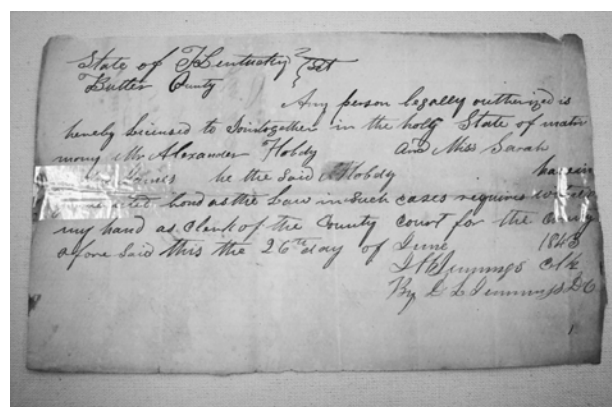 State of Kentucky } Sct
Butler County
Any person legally authorized is
hereby Licensed to Join together in the holy State of matri
mony Mr Alexander Hobdy and Miss Sarah
he the Said Hobdy having
bond as the Law in Such cases requires
my hand as clerk of the County court for the County
afore Said this the 26th day of June 1843
Jennings Clk
By D L Jennings DC